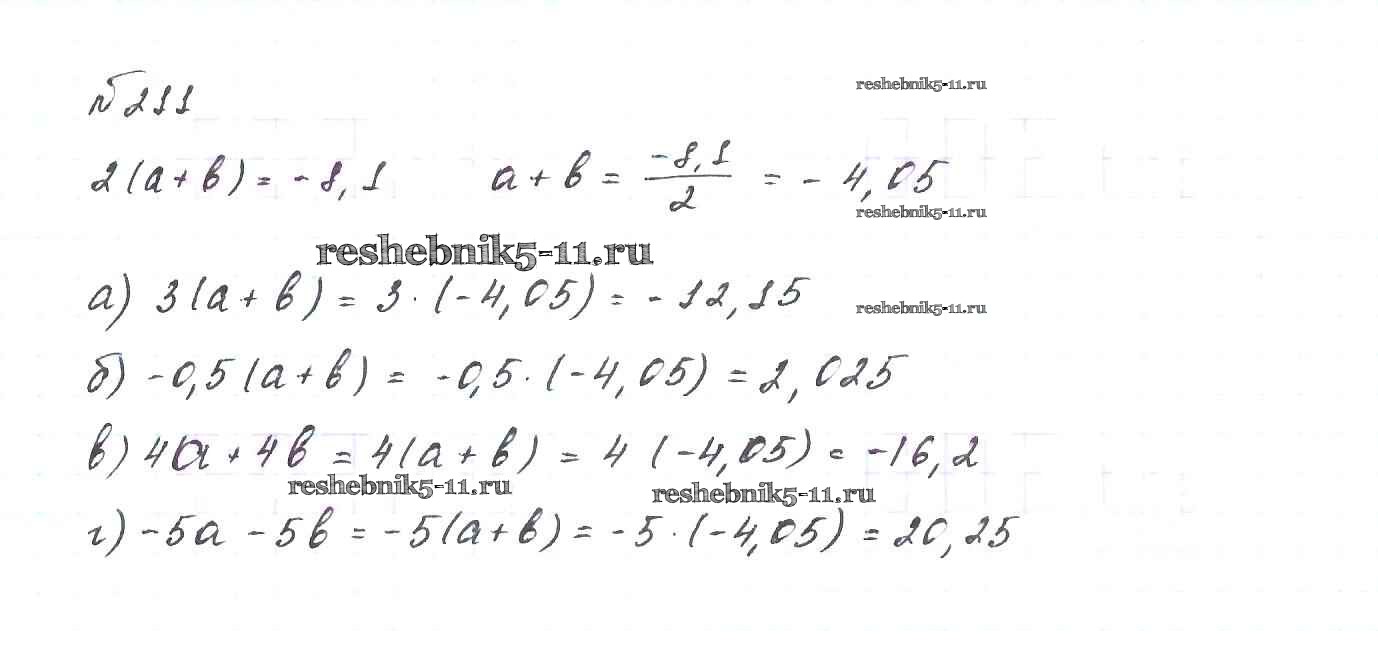 № 211
reshebnik5-11.ru
2(a+b) = -8,1   a+b = \frac{-8,1}{2} = -4,05
reshebnik5-11.ru
reshebnik5-11.ru
а) 3(a+b) = 3·(-4,05) = -12,15
reshebnik5-11.ru
б) -0,5(a+b) = -0,5·(-4,05) = 2,025
в) 4a+4b = 4(a+b) = 4(-4,05) = -16,2
reshebnik5-11.ru
reshebnik5-11.ru
г) -5a-5b = -5(a+b) = -5·(-4,05) = 20,25